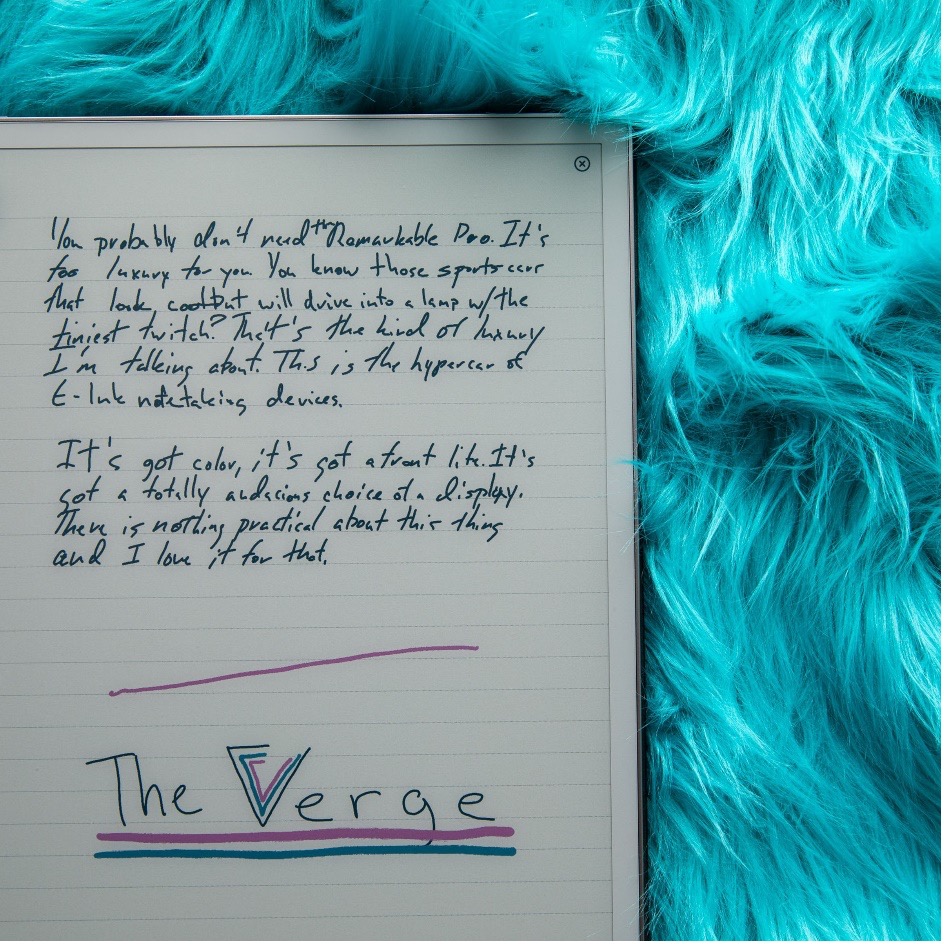 You probably don't need the Remarkable Pro. It's
too luxury for you. You know those sportscar
that look cool but will drive into a lamp w/the
tiniest twitch? That's the kind of luxury
I'm talking about. This is the hypercar of
E-Ink notetaking devices.
It's got color, it's got a front lite. It's
got a totally audacious choice of a display.
There is nothing practical about this thing
and I love it for that.
The Verge